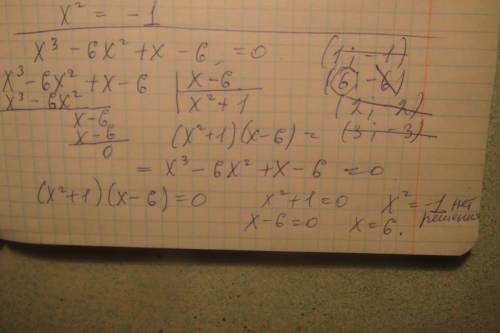 x² = -1
x³ - 6x² + x - 6 = 0
(1; -1)
(6) - 6)
(2; -2)
(3; -3)
x³-6x²+x-6 | x-6
x³-6x² | x²+1
x-6
x-6
0
(x²+1)(x-6) =
= x³-6x²+x-6 = 0
(x²+1)(x-6)=0
x²+1=0
x-6=0
x²=-1 нет
решения
x=6.